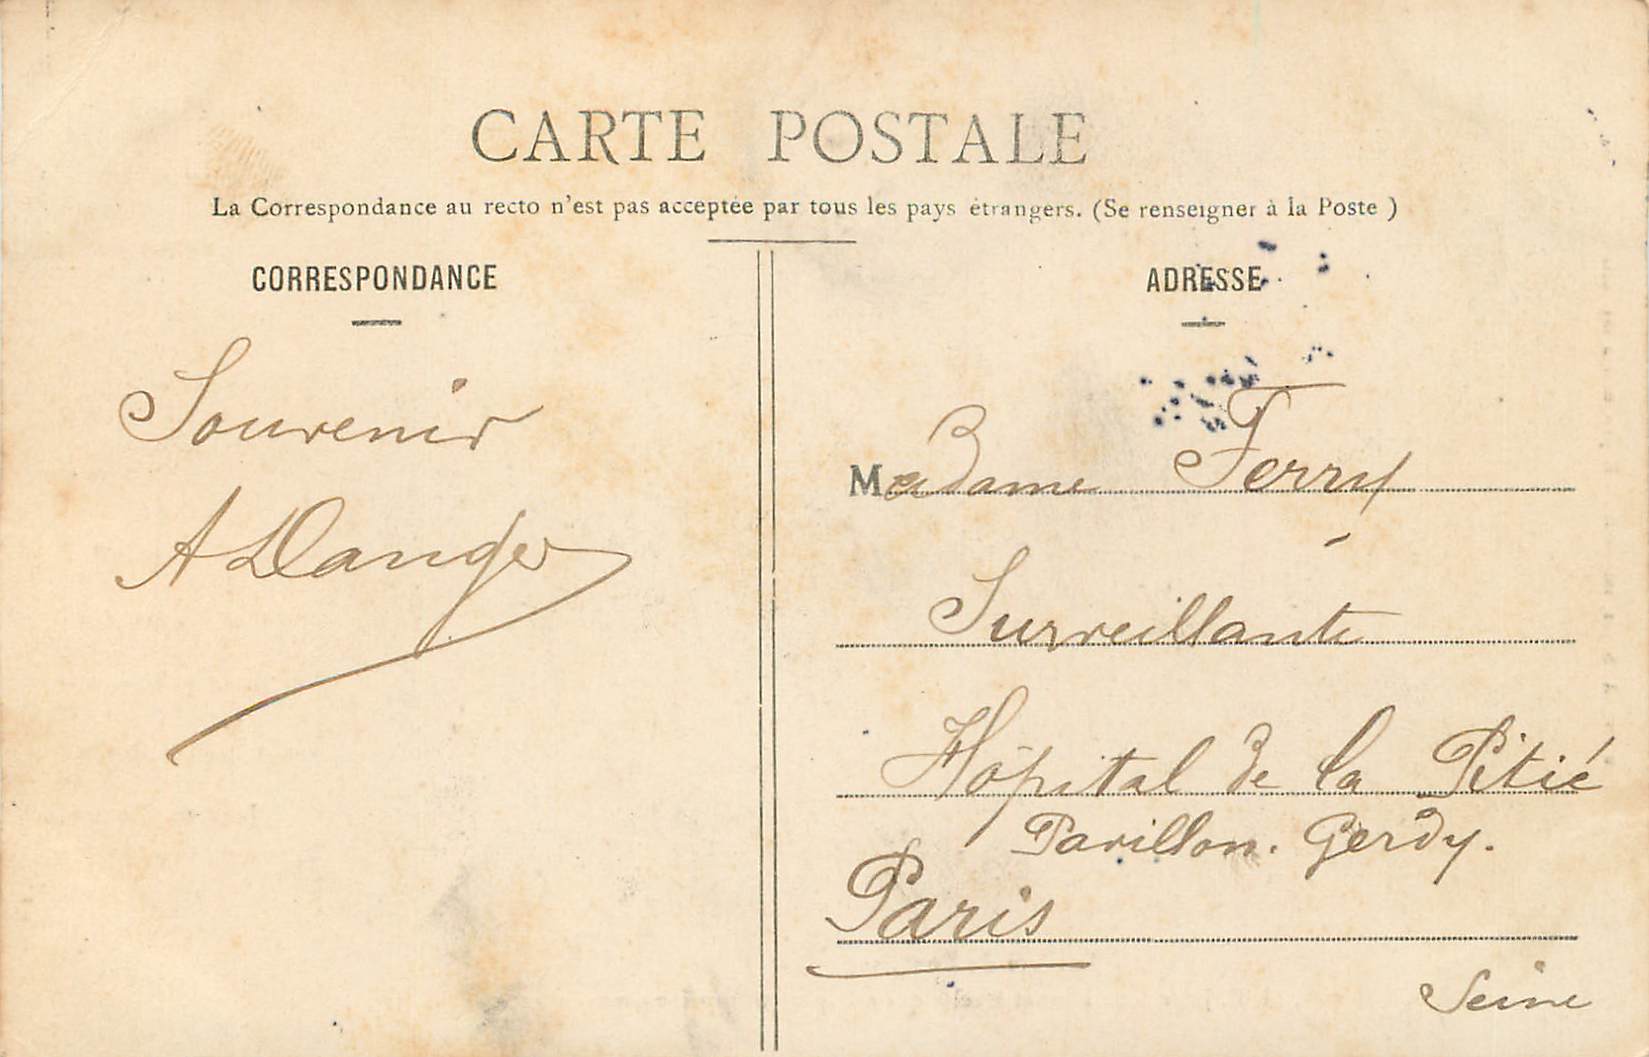 CARTE POSTALE
La Correspondance au recto n'est pas acceptée par tous les pays étrangers. (Se renseigner à la Poste )
CORRESPONDANCE
Souvenir
A Danger
ADRESSE
Madame Ferry
Surveillante
Hôpital de la Pitié
Pavillon. Gerdy.
Paris
Seine